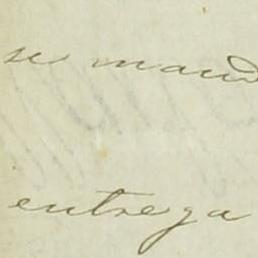 se mand
entrega